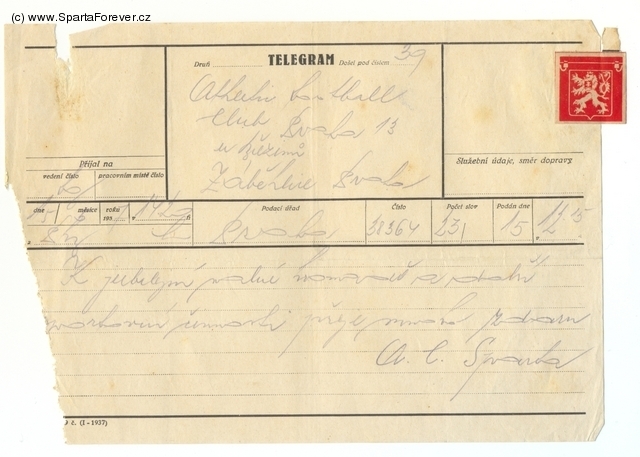 (c) www.SpartaForever.cz
TELEGRAM
Druh Došel pod číslem 39
Athletic football
club Praha 13
u
Záběhlice Praha
Přijal na
vedení číslo pracovním místě číslo
Služební údaje, směr dopravy
dne měsíce roku Podací úřad Číslo Počet slov Podán dne
15 Praha 38364 23 15
K jubilejní valné hromadě a další
činnosti přeje mnoho zdaru
A. C. Sparta
č. (I - 1937)